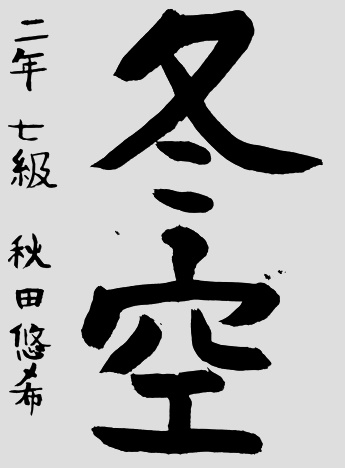 冬空
二年 七級 秋田悠希